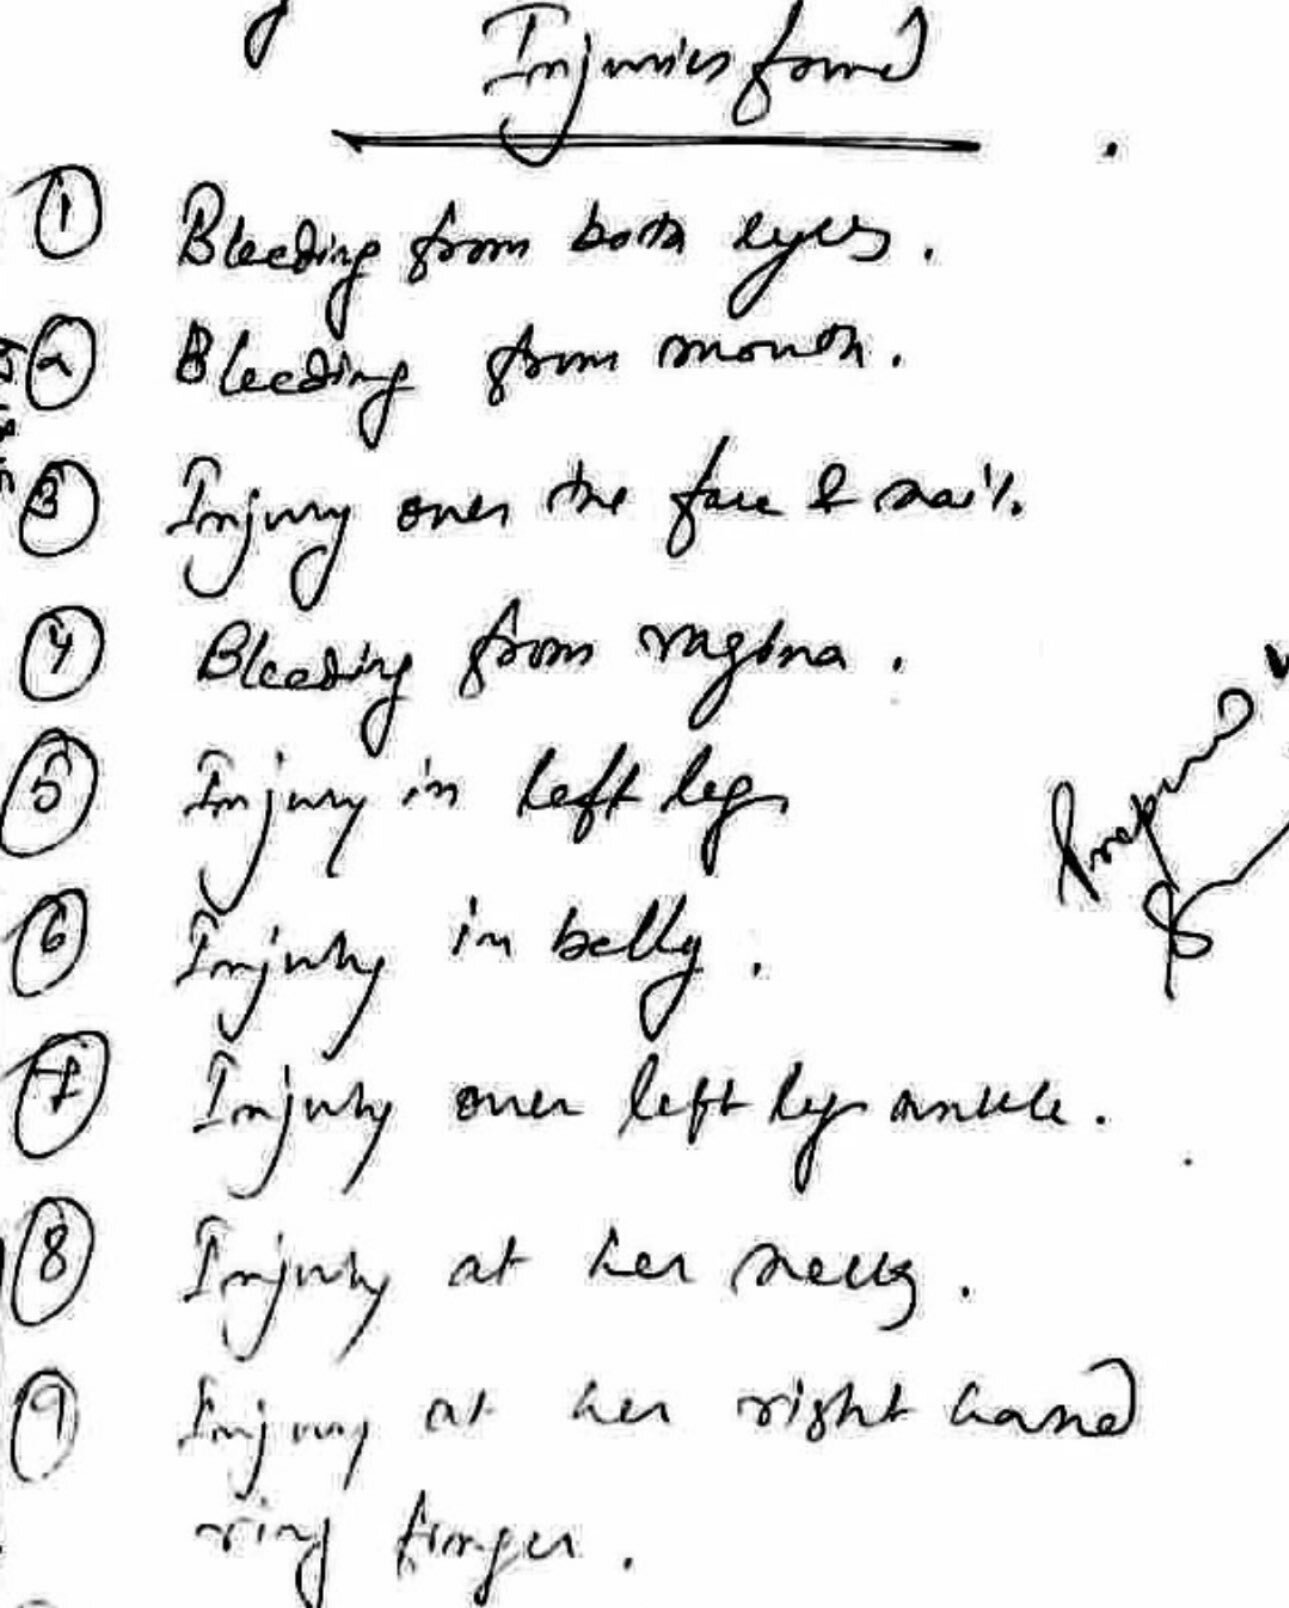 Injuries found
① Bleeding from both eyes.
② Bleeding from mouth.
③ Injury over the face & nail.
④ Bleeding from vagina.
⑤ Injury in left leg
⑥ Injury in belly.
⑦ Injury over left leg ankle.
⑧ Injury at her
⑨ Injury at her right hand
ring finger.